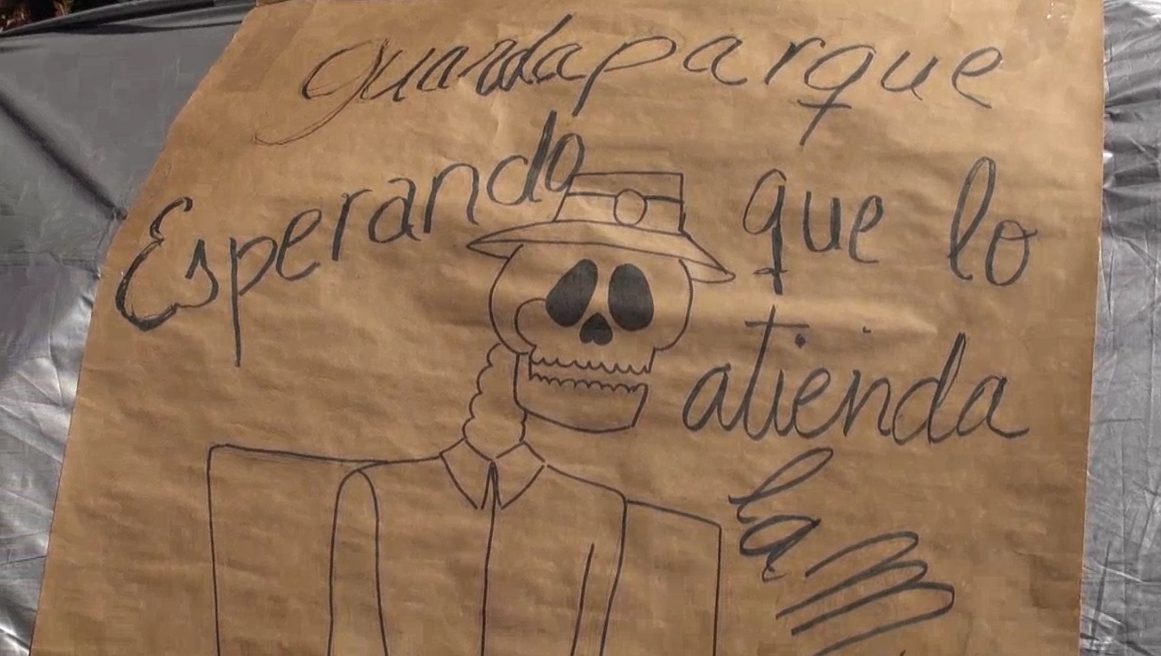 guardaparque
Esperando que lo
atienda
la